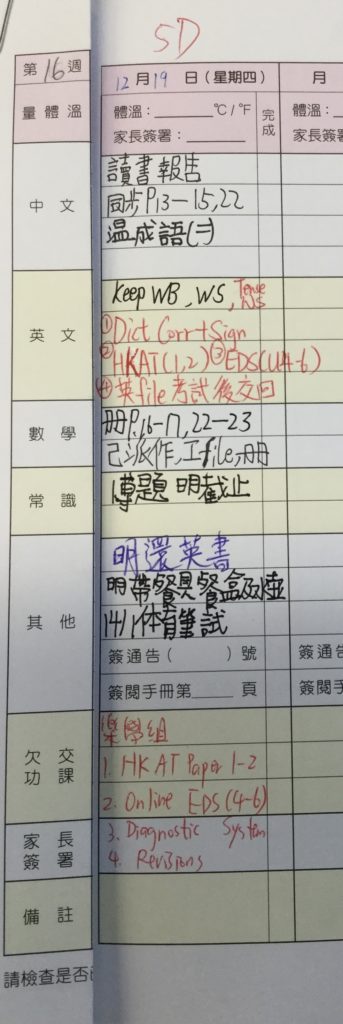 5D
第16週
12月19日(星期四)
月
量體溫
體溫:
℃/℉
完成
體溫:
家長簽署:
家長簽
中文
讀書報告
同步P.13-15,22
温成語(二)
英文
Keep WB, WS, Tense NS
①Dict Corr+Sign
②HKAT(1,2)③EDS(U4-6)
④英file考試後交回
數學
冊P.16-17, 22-23
已派作,工file,冊
常識
專題 明截止
其他
明還英書
明帶餐具餐盒及水壺
14/1體育筆試
簽通告( )號
簽通告
簽閱手冊第 頁
簽閱手
欠交功課
樂學組
1. HKAT Paper 1-2
2. Online EDS(4-6)
家長簽署
3. Diagnostic System
4. Revisions
備註
請檢查是否